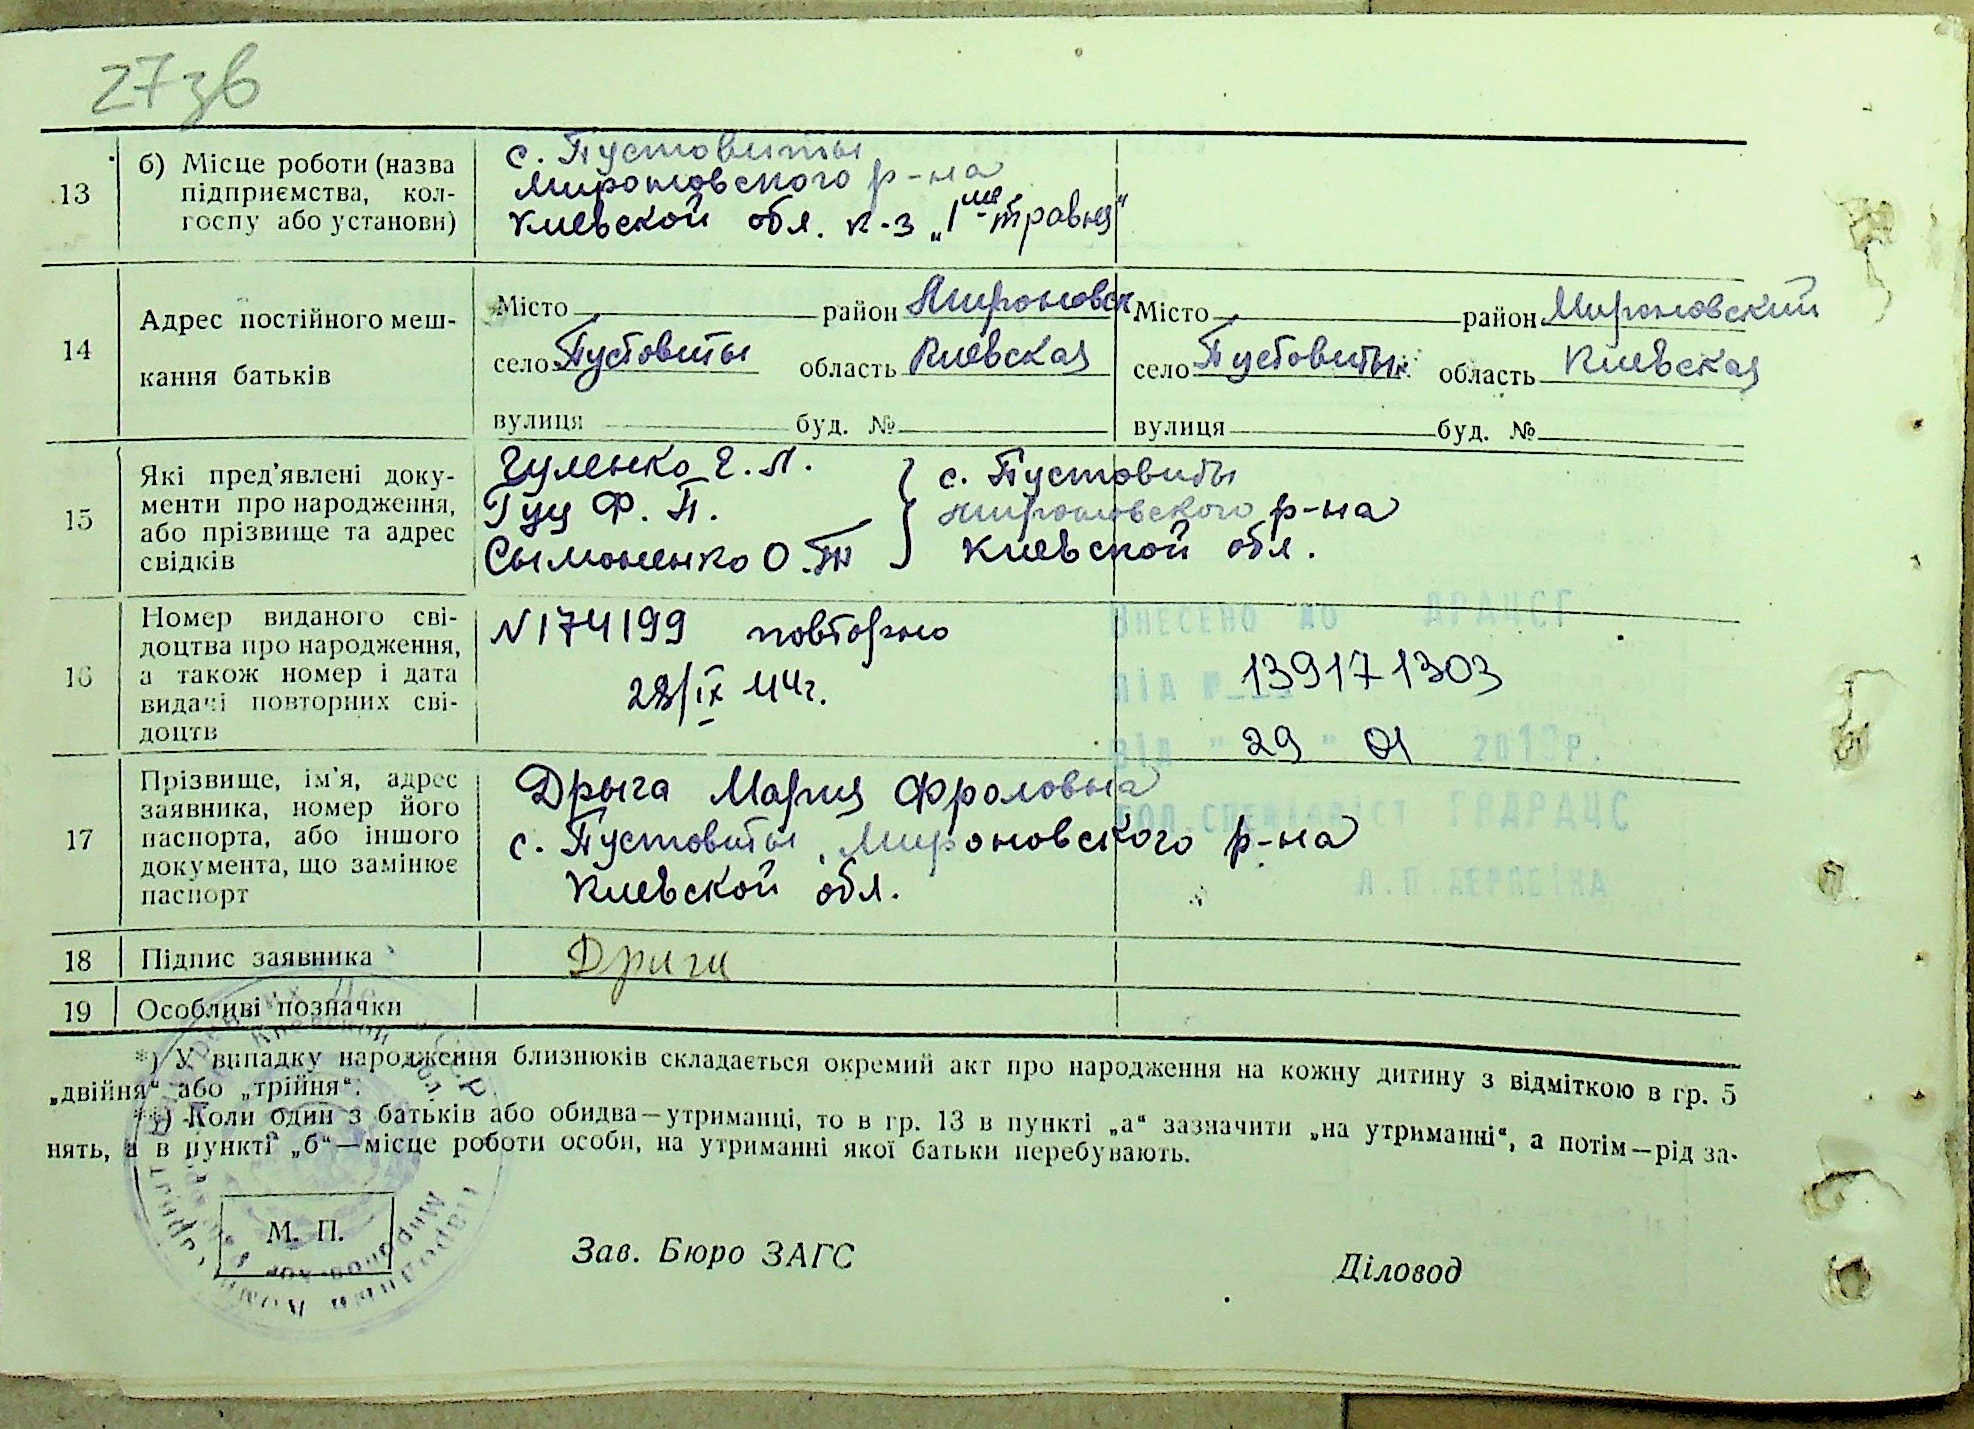 27зв
13
б) Місце роботи (назва
підприємства, кол-
госпу або установи)
с. Пустовиты
Мироновского р-на
Киевской обл. к-з „1ше травня“
14
Адрес постійного меш-
кання батьків
Місто район Мироновск
село Пустовиты область Киевская
вулиця буд. №
Місто район Мироновский
село Пустовиты область Киевская
вулиця буд. №
15
Які пред'явлені доку-
менти про народження,
або прізвище та адрес
свідків
Гуленко Г. П.
Гуц Ф. П.
Сымоненко О. Т
с. Пустовиты
Мироновского р-на
Киевской обл.
16
Номер виданого сві-
доцтва про народження,
а також номер і дата
видачі повторних сві-
доцтв
N 174199 повторно
28/IX 44г.
Внесено до ДРАЦСГ
під № 139171303
від " 29 " 01 2013р.
гол.спеціаліст ГВДРАЦС
17
Прізвище, ім'я, адрес
заявника, номер його
паспорта, або іншого
документа, що замінює
паспорт
Дрыга Мария Фроловна
с. Пустовиты Мироновского р-на
Киевской обл.
18
Підпис заявника
Дрига
19
Особливі позначки
*) У випадку народження близнюків складається окремий акт про народження на кожну дитину з відміткою в гр. 5
„двійня“ або „трійня“.
**) Коли один з батьків або обидва—утриманці, то в гр. 13 в пункті „а“ зазначити „на утриманні“, а потім—рід за-
нять, а в пункті „б“—місце роботи особи, на утриманні якої батьки перебувають.
М. П.
Зав. Бюро ЗАГС
Діловод